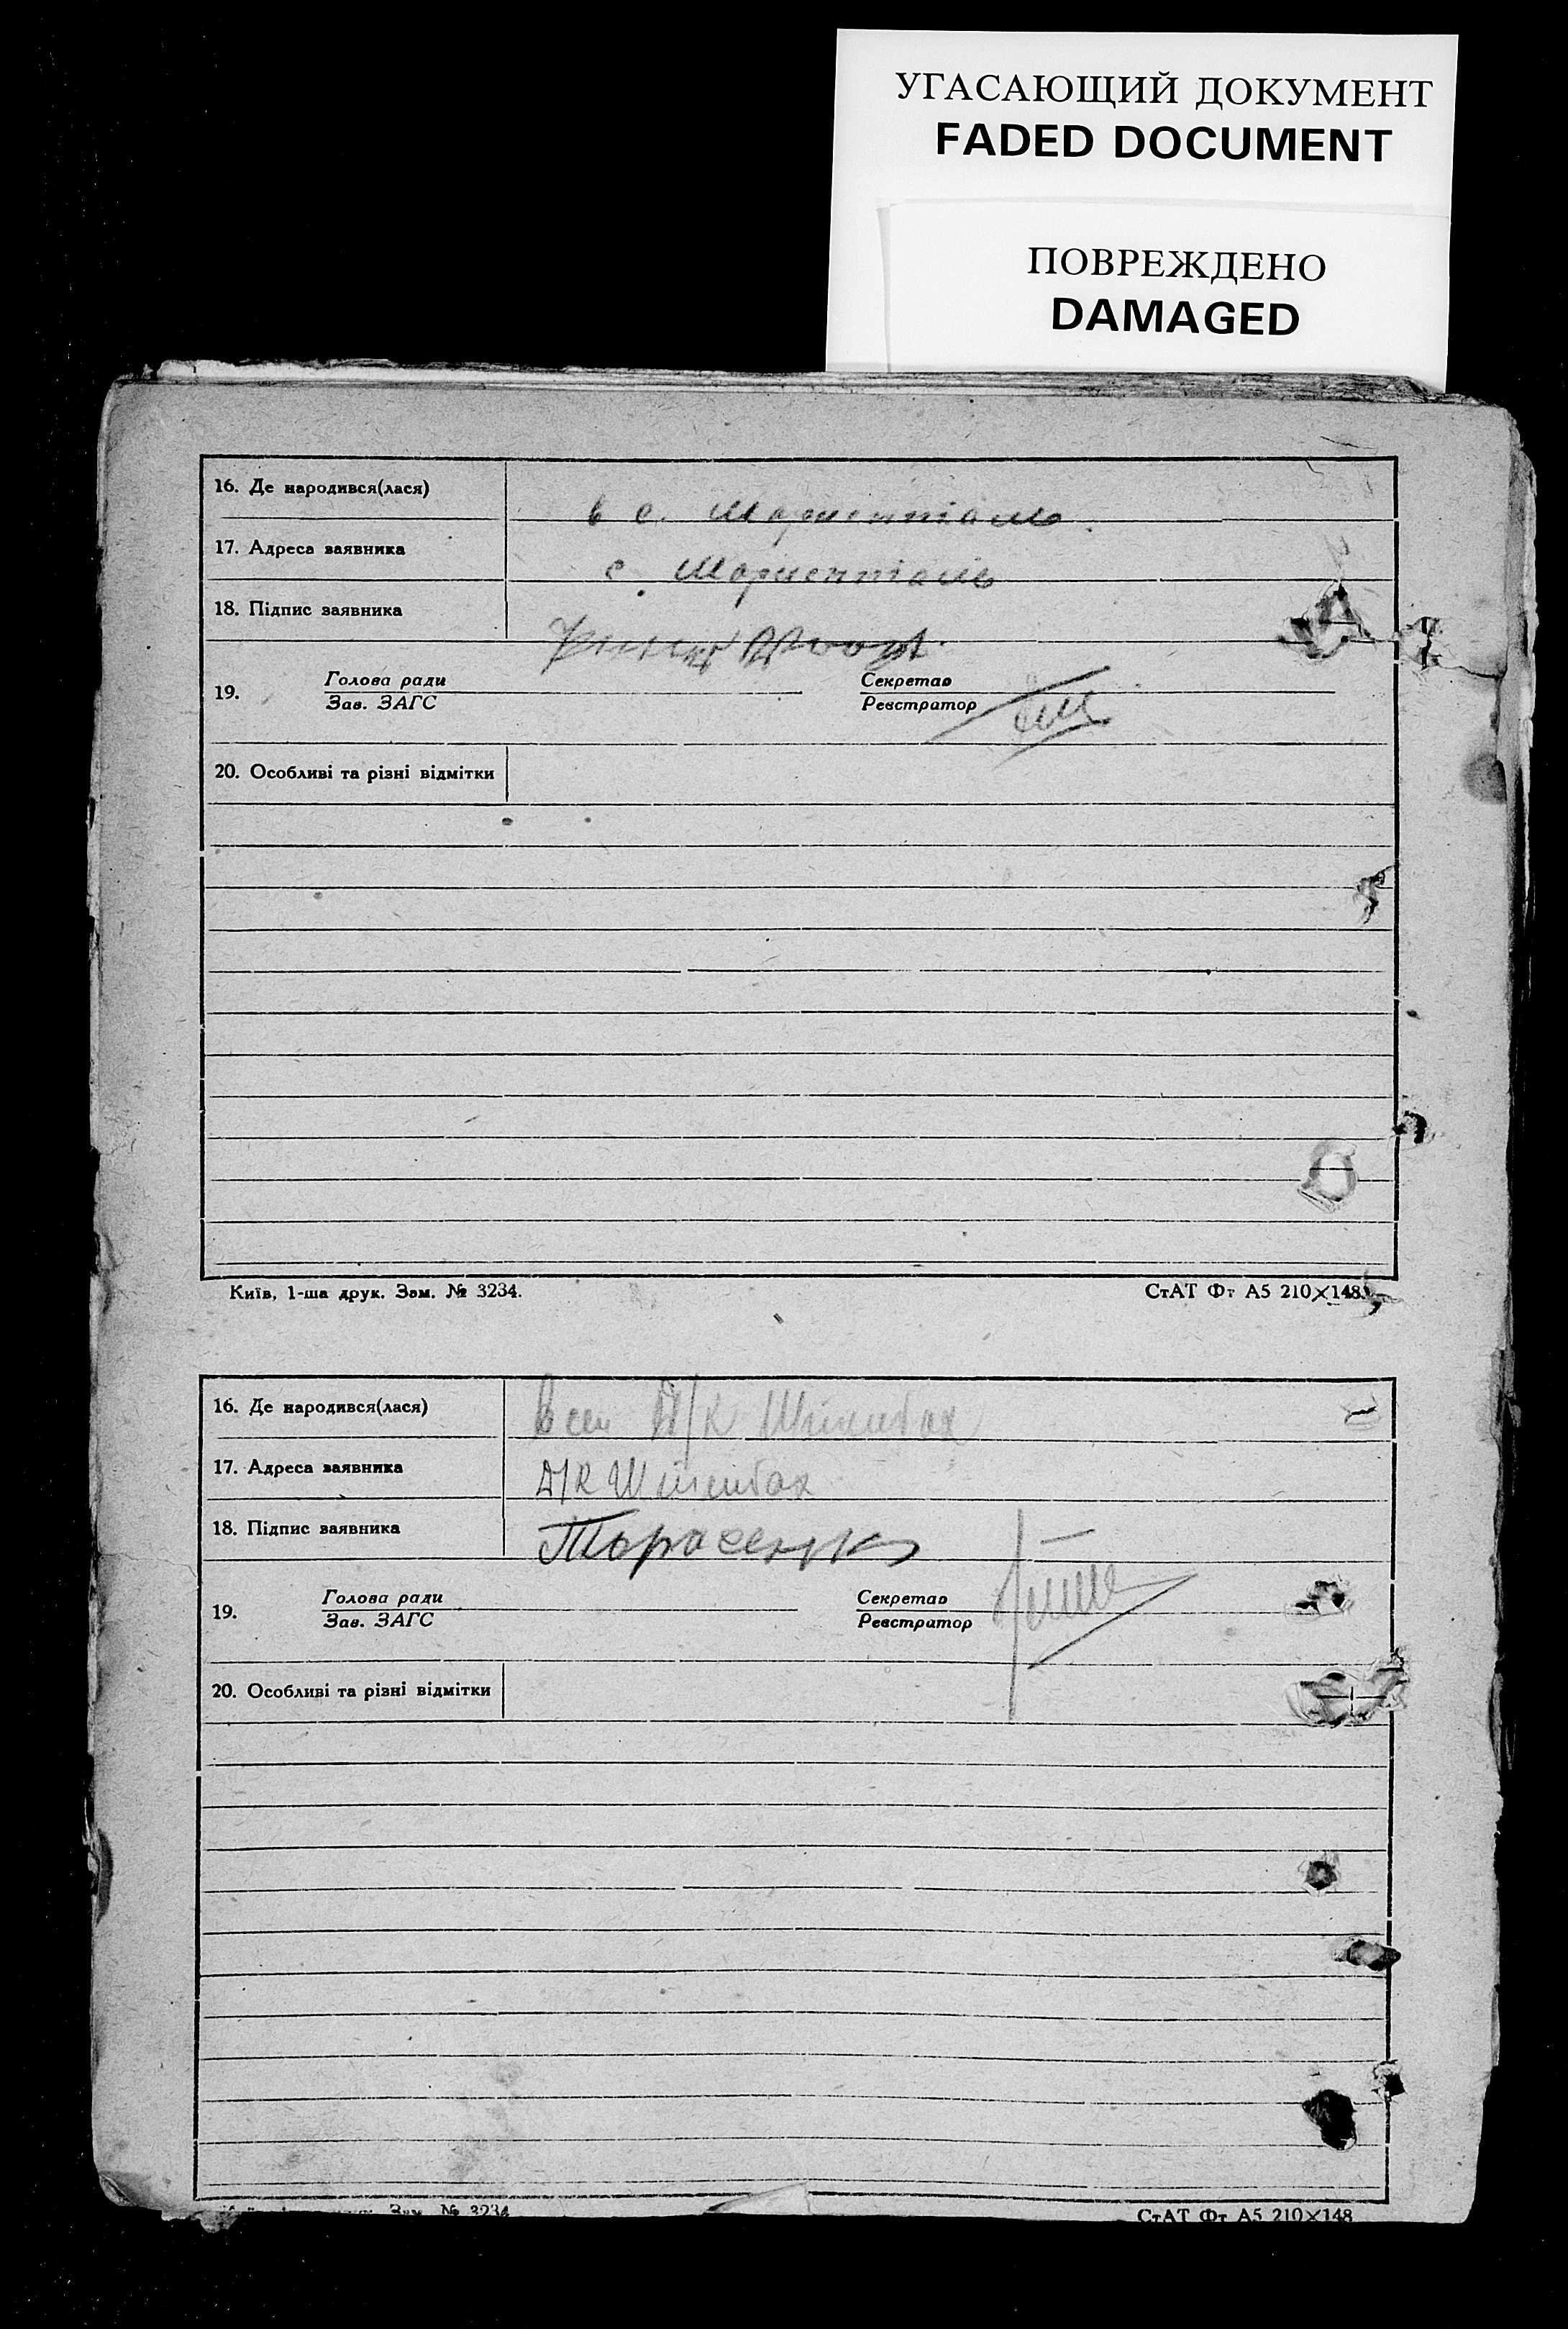 УГАСАЮЩИЙ ДОКУМЕНТ
FADED DOCUMENT
ПОВРЕЖДЕНО
DAMAGED
16. Де народився(лася) в с. Мариенталь.
17. Адреса заявника с. Мариенталь
18. Підпис заявника
19. Голова ради Секретар
Зав. ЗАГС Реєстратор
20. Особливі та різні відмітки
Київ, 1-ша друк. Зам. № 3234. СтАТ Фт А5 210×148.
16. Де народився(лася) В сел Д/К
17. Адреса заявника Д/К
18. Підпис заявника Тарасенко
19. Голова ради Секретар
Зав. ЗАГС Реєстратор
20. Особливі та різні відмітки
Зам. № 3234 СтАТ Фт А5 210×148